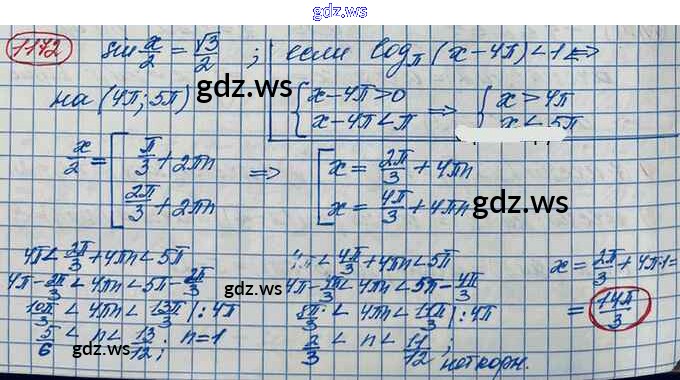 gdz.ws
1172 sin x/2 = √3/2 ; если log_π (x-4π) < 1 ⇔
на (4π; 5π) { x-4π > 0 ⇒ { x > 4π
x-4π < π x < 5π
gdz.ws
x/2 = [ π/3 + 2πn ⇒ [ x = 2π/3 + 4πn
2π/3 + 2πn x = 4π/3 + 4πn
gdz.ws
4π < 2π/3 + 4πn < 5π
4π - 2π/3 < 4πn < 5π - 2π/3
10π/3 < 4πn < 13π/3 | : 4π
5/6 < n < 13/12 ; n = 1
< 4π/3 + 4πn < 5π
4π - 4π/3 < 4πn < 5π - 4π/3
8π/3 < 4πn < 11π/3 | : 4π
2/3 < n < 11/12 ;
нет корн.
x = 2π/3 + 4π·1 =
= 14π/3
gdz.ws